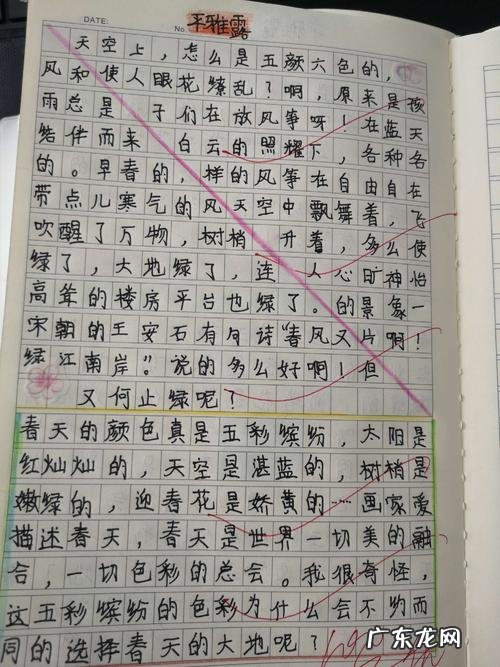 DATE:
No. 平雅露
天空上，怎么是五颜六色的，
风和使人眼花缭乱？啊，原来是孩
雨总是 子们在放风筝呀！在蓝天
结伴而来 白云的照耀下，各种各
的。早春的，样的风筝在自由自在
带点儿寒气的风天空中飘舞着，飞
吹醒了万物，树梢 升着，多么使
绿了，大地绿了，连 人心旷神怡
高耸的楼房平台也绿了。的景象一
宋朝的王安石有句诗“春风又片啊！
绿江南岸。”说的多么好啊！但
又何止绿呢？
春天的颜色真是五彩缤纷，太阳是
红灿灿的，天空是湛蓝的，树梢是
嫩绿的，迎春花是娇黄的……画家爱
描述春天，春天是世界一切美的融
合，一切色彩的总会。我很奇怪，
这五彩缤纷的色彩为什么会不约而
同的选择春天的大地呢？
广东龙网